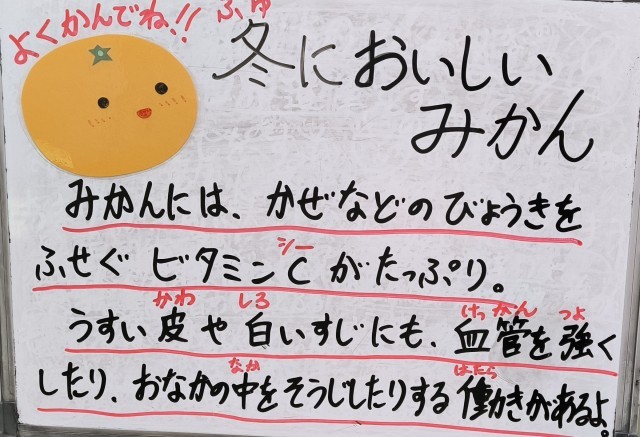 よくかんでね!!
ふゆ
冬においしい
みかん
みかんには、かぜなどのびょうきを
シー
ふせぐ ビタミンC がたっぷり。
かわ しろ けっかん つよ
うすい皮や白いすじにも、血管を強く
なか はたら
したり、おなかの中をそうじしたりする働きがあるよ。